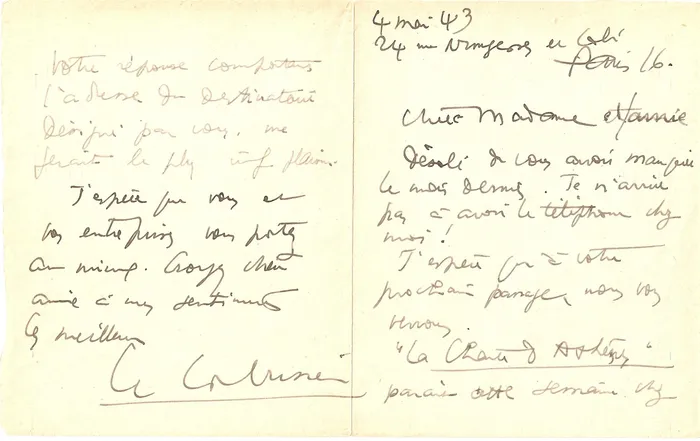 4 mai 43
24 rue Nungesser et Coli
Paris 16.
Chère Madame et amie
Désolé de vous avoir manquée
le mois dernier. Je n'arrive
pas à avoir le téléphone chez
moi!
J'espère qu'à votre
prochain passage, nous vous
verrons.
"La Charte d'Athènes"
paraît cette semaine chez
Votre réponse comportant
l'adresse du destinataire
désigné par vous, me
ferait le plus vif plaisir.
J'espère que vous et
vos entreprises vous portez
au mieux. Croyez chère
amie à mes sentiments
les meilleurs
Le Corbusier